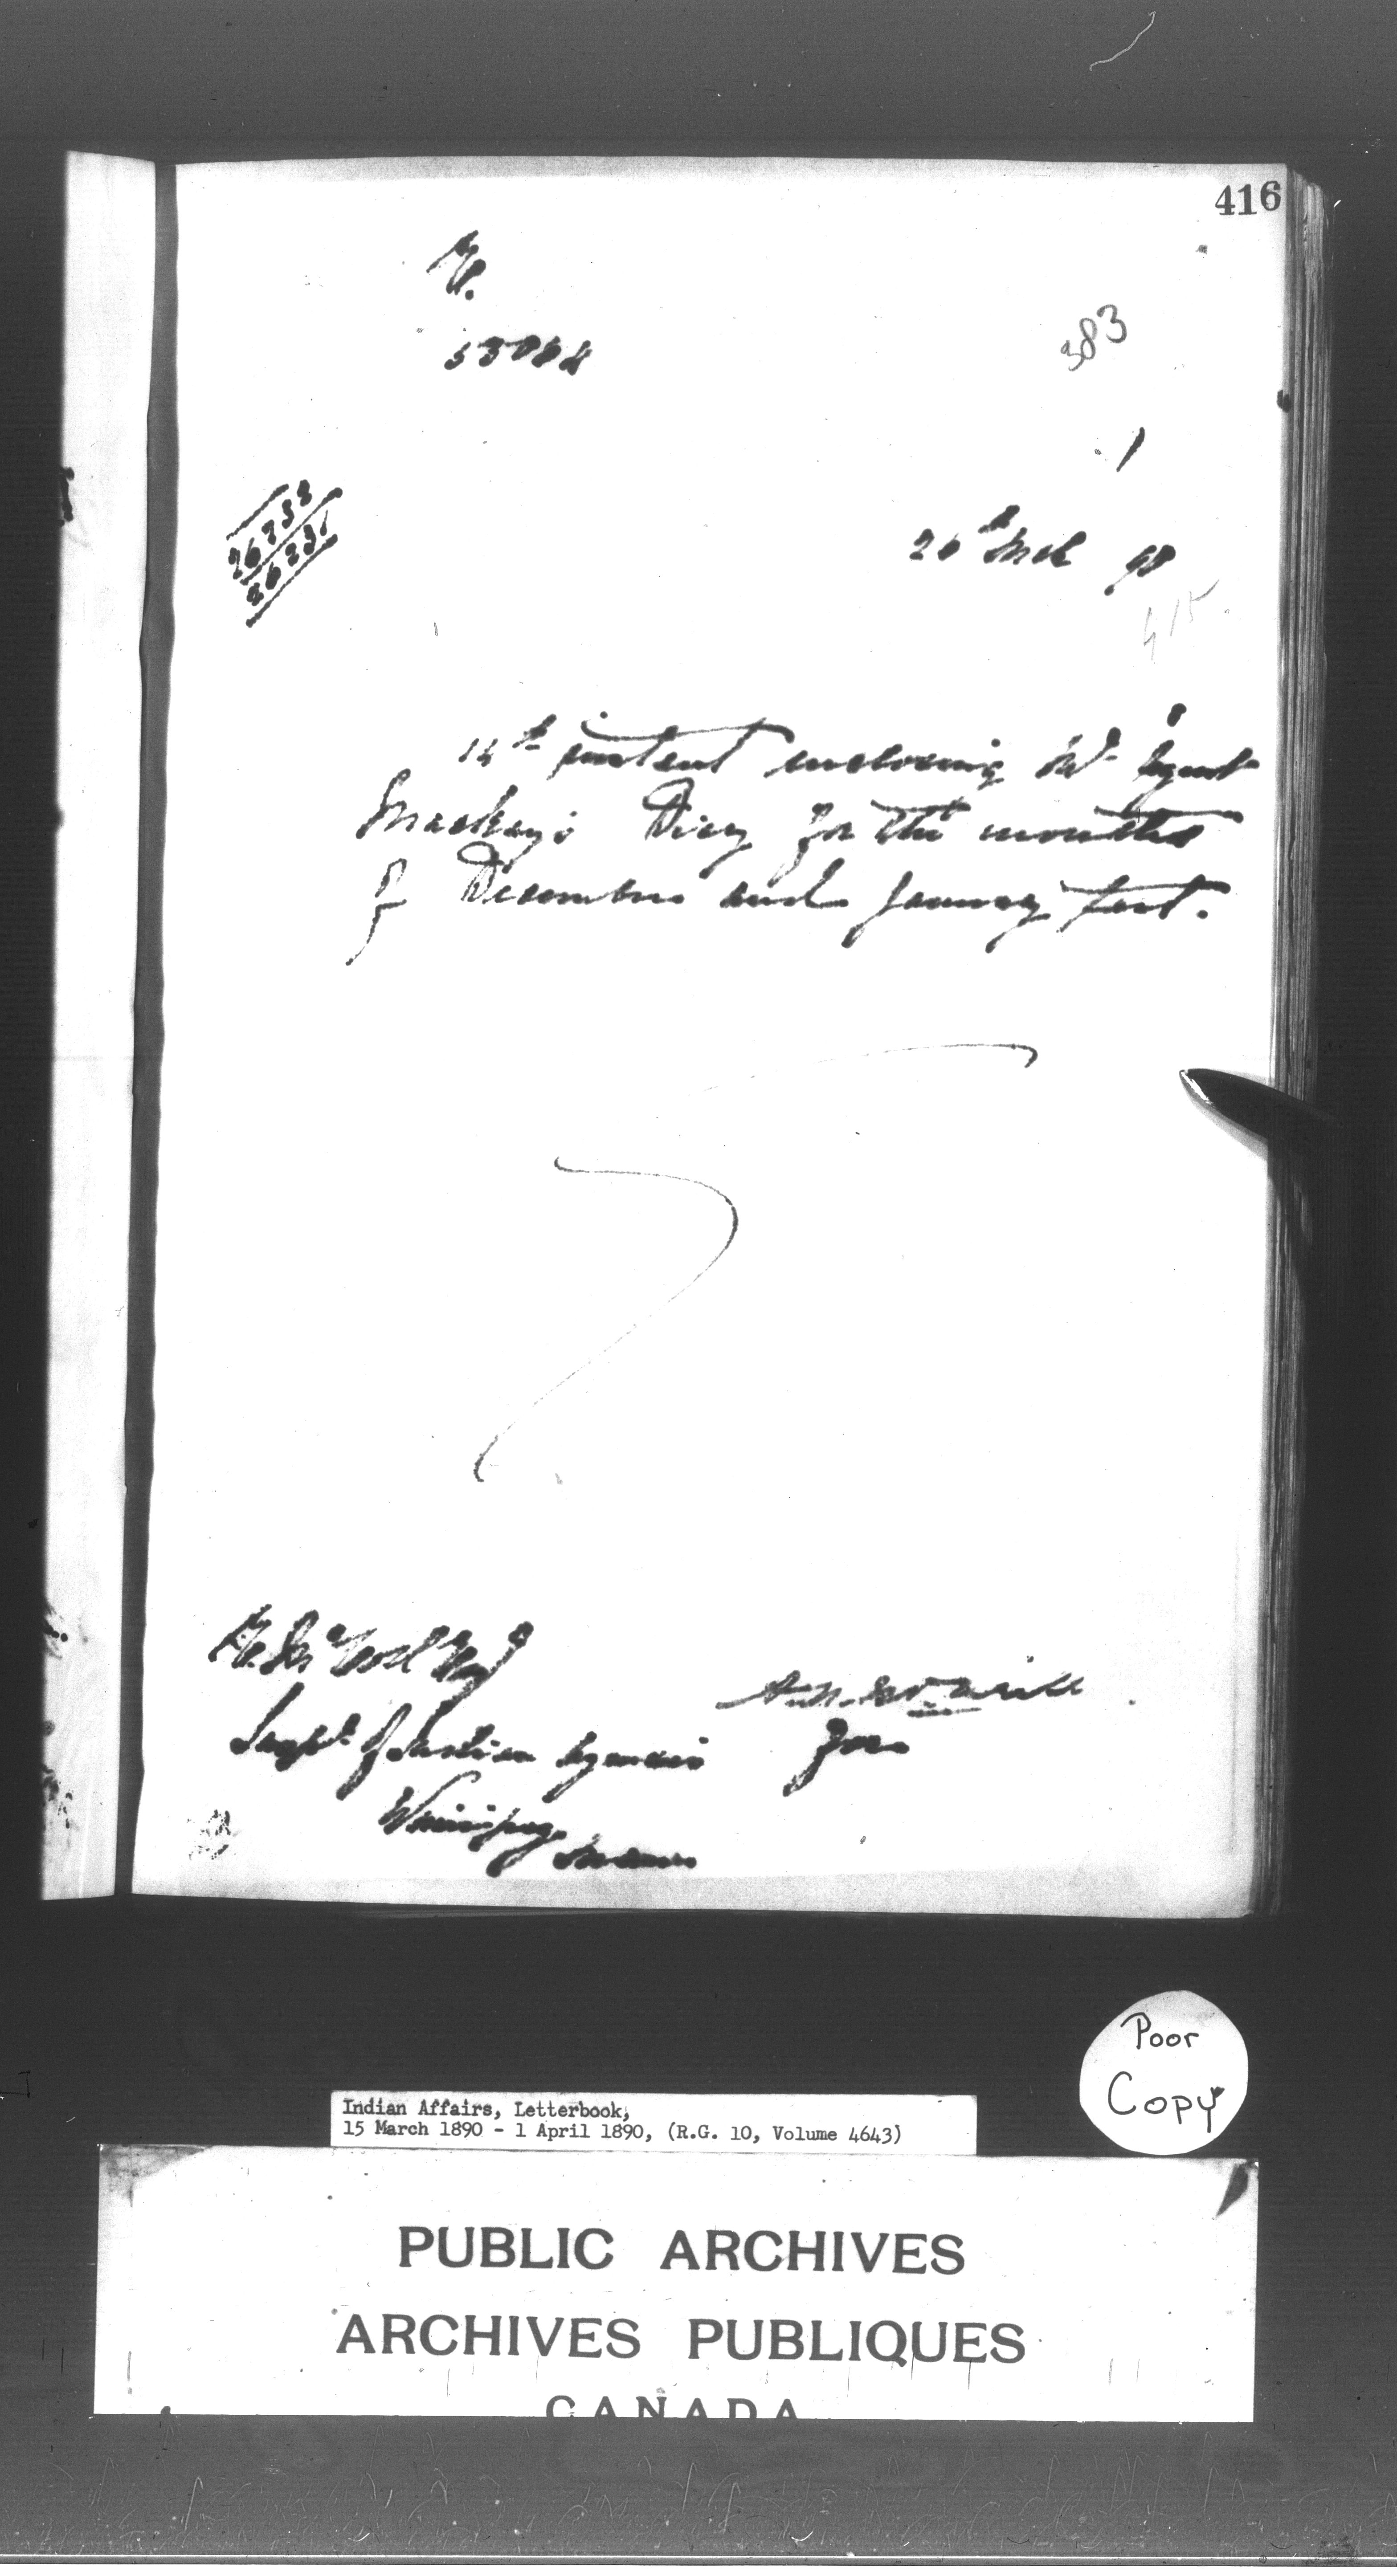 416
383
26th Mch 90
415
14th instant enclosing Ind. Agent
Mackay's Diary for the months
of December and January last.
E. McColl Esq
Supt. of Indian Agencies
Winnipeg
for
Poor
Copy
Indian Affairs, Letterbook,
15 March 1890 - 1 April 1890, (R.G. 10, Volume 4643)
PUBLIC ARCHIVES
ARCHIVES PUBLIQUES
CANADA